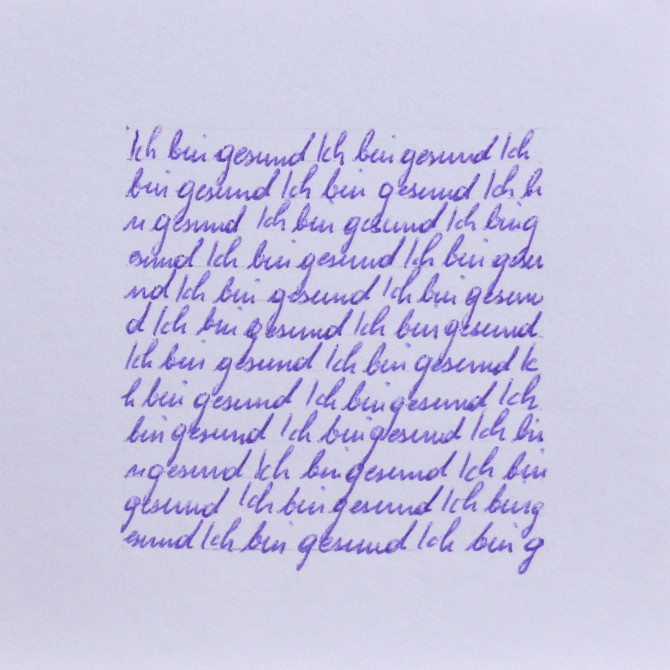 Ich bin gesund Ich bin gesund Ich
bin gesund Ich bin gesund Ich bi
n gesund Ich bin gesund Ich bin g
esund Ich bin gesund Ich bin gesu
nd Ich bin gesund Ich bin gesun
d Ich bin gesund Ich bin gesund
Ich bin gesund Ich bin gesund Ic
h bin gesund Ich bin gesund Ich
bin gesund Ich bin gesund Ich bi
n gesund Ich bin gesund Ich bin
gesund Ich bin gesund Ich bin g
esund Ich bin gesund Ich bin g